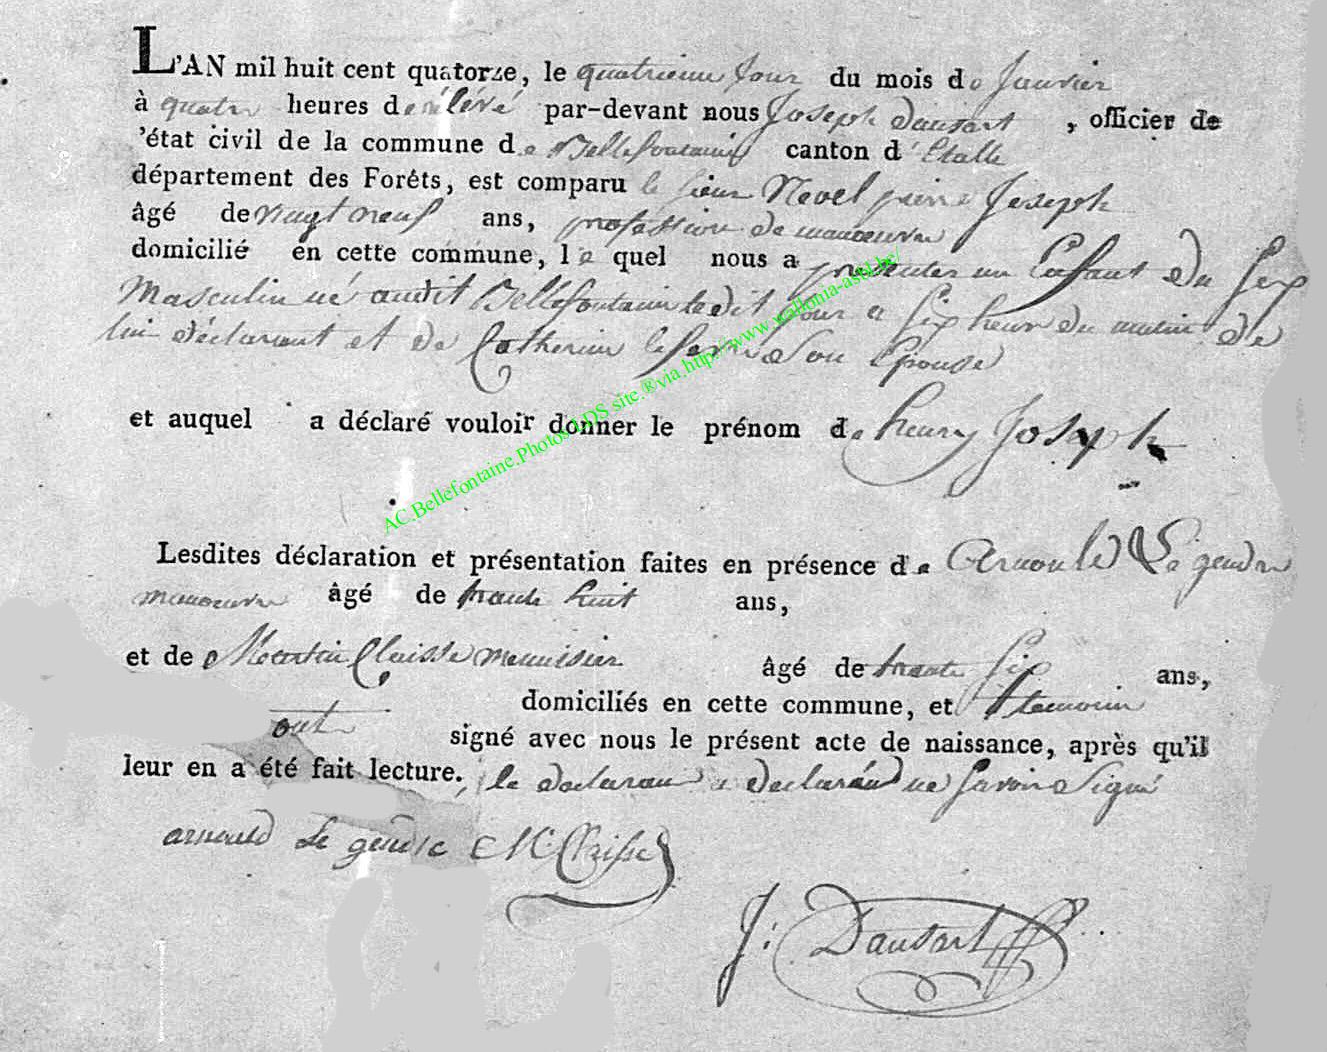 L'AN mil huit cent quatorze, le quatrieme Jour du mois de Janvier
à quatre heures de rélévé par-devant nous Joseph Dausart, officier de
'état civil de la commune de Bellefontaine canton d'Etalle
département des Forêts, est comparu le sieur Nevel pierre Joseph
âgé de vingt neuf ans, profession de manoeuvre
domicilié en cette commune, le quel nous a presenter un Enfant du sex
Masculin né audit Bellefontaine ledit jour a six heur du matin de
lui déclarant et de Catherine Son Epouse
et auquel a déclaré vouloir donner le prénom de henry Joseph
Lesdites déclaration et présentation faites en présence de Arnould Le gendre
manoeuvre âgé de trante huit ans,
et de Martin Claisse menuisier âgé de trante six ans,
domiciliés en cette commune, et temoin
ont signé avec nous le présent acte de naissance, après qu'il
leur en a été fait lecture. le declarant a declaré ne savoir Signé
arnould Le gendre M. Claisse
J: Dausart
AC.Bellefontaine.Photos LDS site.®via.http://www.wallonia-asbl.be/